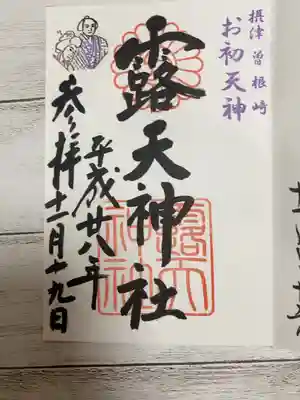 摂津 曽根崎
お初天神
露天神社
平成廿八年
参拝 十一月十九日